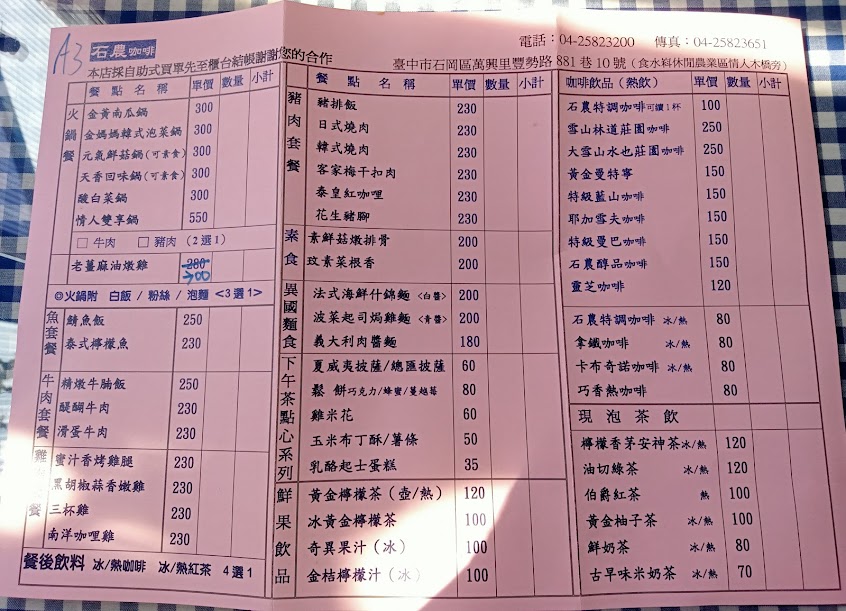 A3 石農咖啡
電話：04-25823200 傳真：04-25823651
本店採自助式買單先至櫃台結帳謝謝您的合作
臺中市石岡區萬興里豐勢路 881 巷 10 號(食水嵙休閒農業區情人木橋旁)
餐點名稱 單價 數量 小計
火鍋餐
金黃南瓜鍋 300
金媽媽韓式泡菜鍋 300
元氣鮮菇鍋(可素食) 300
天香回味鍋(可素食) 300
酸白菜鍋 300
情人雙享鍋 550
□ 牛肉 □ 豬肉（2選1）
老薑麻油燉雞 280 300
◎火鍋附 白飯 / 粉絲 / 泡麵 <3選1>
魚套餐
鯖魚飯 250
泰式檸檬魚 230
牛肉套餐
精燉牛腩飯 250
醍醐牛肉 230
滑蛋牛肉 230
雞 餐
蜜汁香烤雞腿 230
黑胡椒蒜香嫩雞 230
三杯雞 230
南洋咖哩雞 230
餐後飲料 冰/熱咖啡 冰/熱紅茶 4選1
餐點名稱 單價 數量 小計
豬肉套餐
豬排飯 230
日式燒肉 230
韓式燒肉 230
客家梅干扣肉 230
泰皇紅咖哩 230
花生豬腳 230
素食
素鮮菇燉排骨 200
玟素菜根香 200
異國麵食
法式海鮮什錦麵 <白醬> 200
波菜起司焗雞麵 <青醬> 200
義大利肉醬麵 180
下午茶點心系列
夏威夷披薩/總匯披薩 60
鬆 餅巧克力/蜂蜜/蔓越莓 80
雞米花 60
玉米布丁酥/薯條 50
乳酪起士蛋糕 35
鮮果飲品
黃金檸檬茶（壺/熱） 120
冰黃金檸檬茶 100
奇異果汁（冰） 100
金桔檸檬汁（冰） 100
咖啡飲品（熱飲） 單價 數量 小計
石農特調咖啡可續1杯 100
雪山林道莊園咖啡 250
大雪山水也莊園咖啡 250
黃金曼特寧 150
特級藍山咖啡 150
耶加雪夫咖啡 150
特級曼巴咖啡 150
石農醇品咖啡 150
靈芝咖啡 120
石農特調咖啡 冰/熱 80
拿鐵咖啡 冰/熱 80
卡布奇諾咖啡 冰/熱 80
巧香熱咖啡 80
現泡茶飲
檸檬香茅安神茶冰/熱 120
油切綠茶 冰/熱 120
伯爵紅茶 熱 100
黃金柚子茶 冰/熱 100
鮮奶茶 冰/熱 80
古早味米奶茶 冰/熱 70